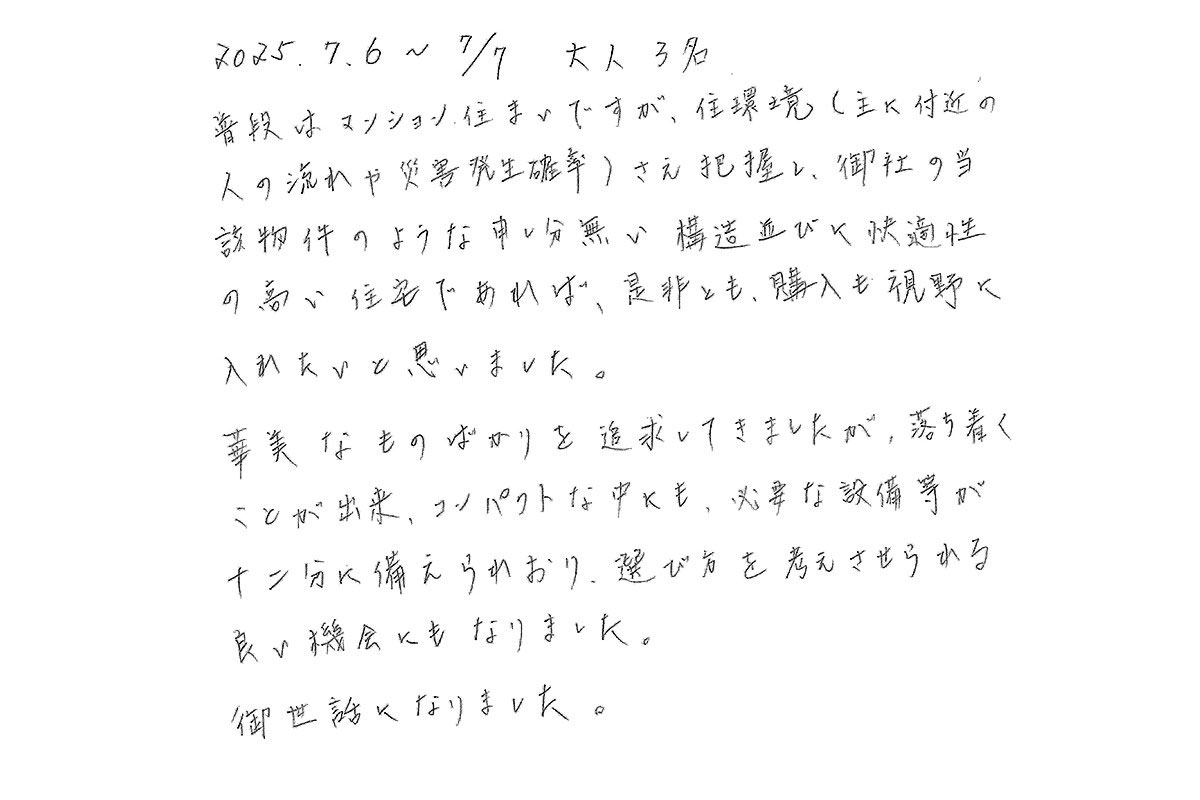 2025.7.6～7/7　大人3名
普段はマンション住まいですが、住環境(主に付近の
人の流れや災害発生確率)さえ把握し、御社の当
該物件のような申し分無い構造並びに快適性
の高い住宅であれば、是非とも、購入も視野に
入れたいと思いました。
華美なものばかりを追求してきましたが、落ち着く
ことが出来、コンパクトな中にも、必要な設備等が
十二分に備えられおり、選び方を考えさせられる
良い機会にもなりました。
御世話になりました。